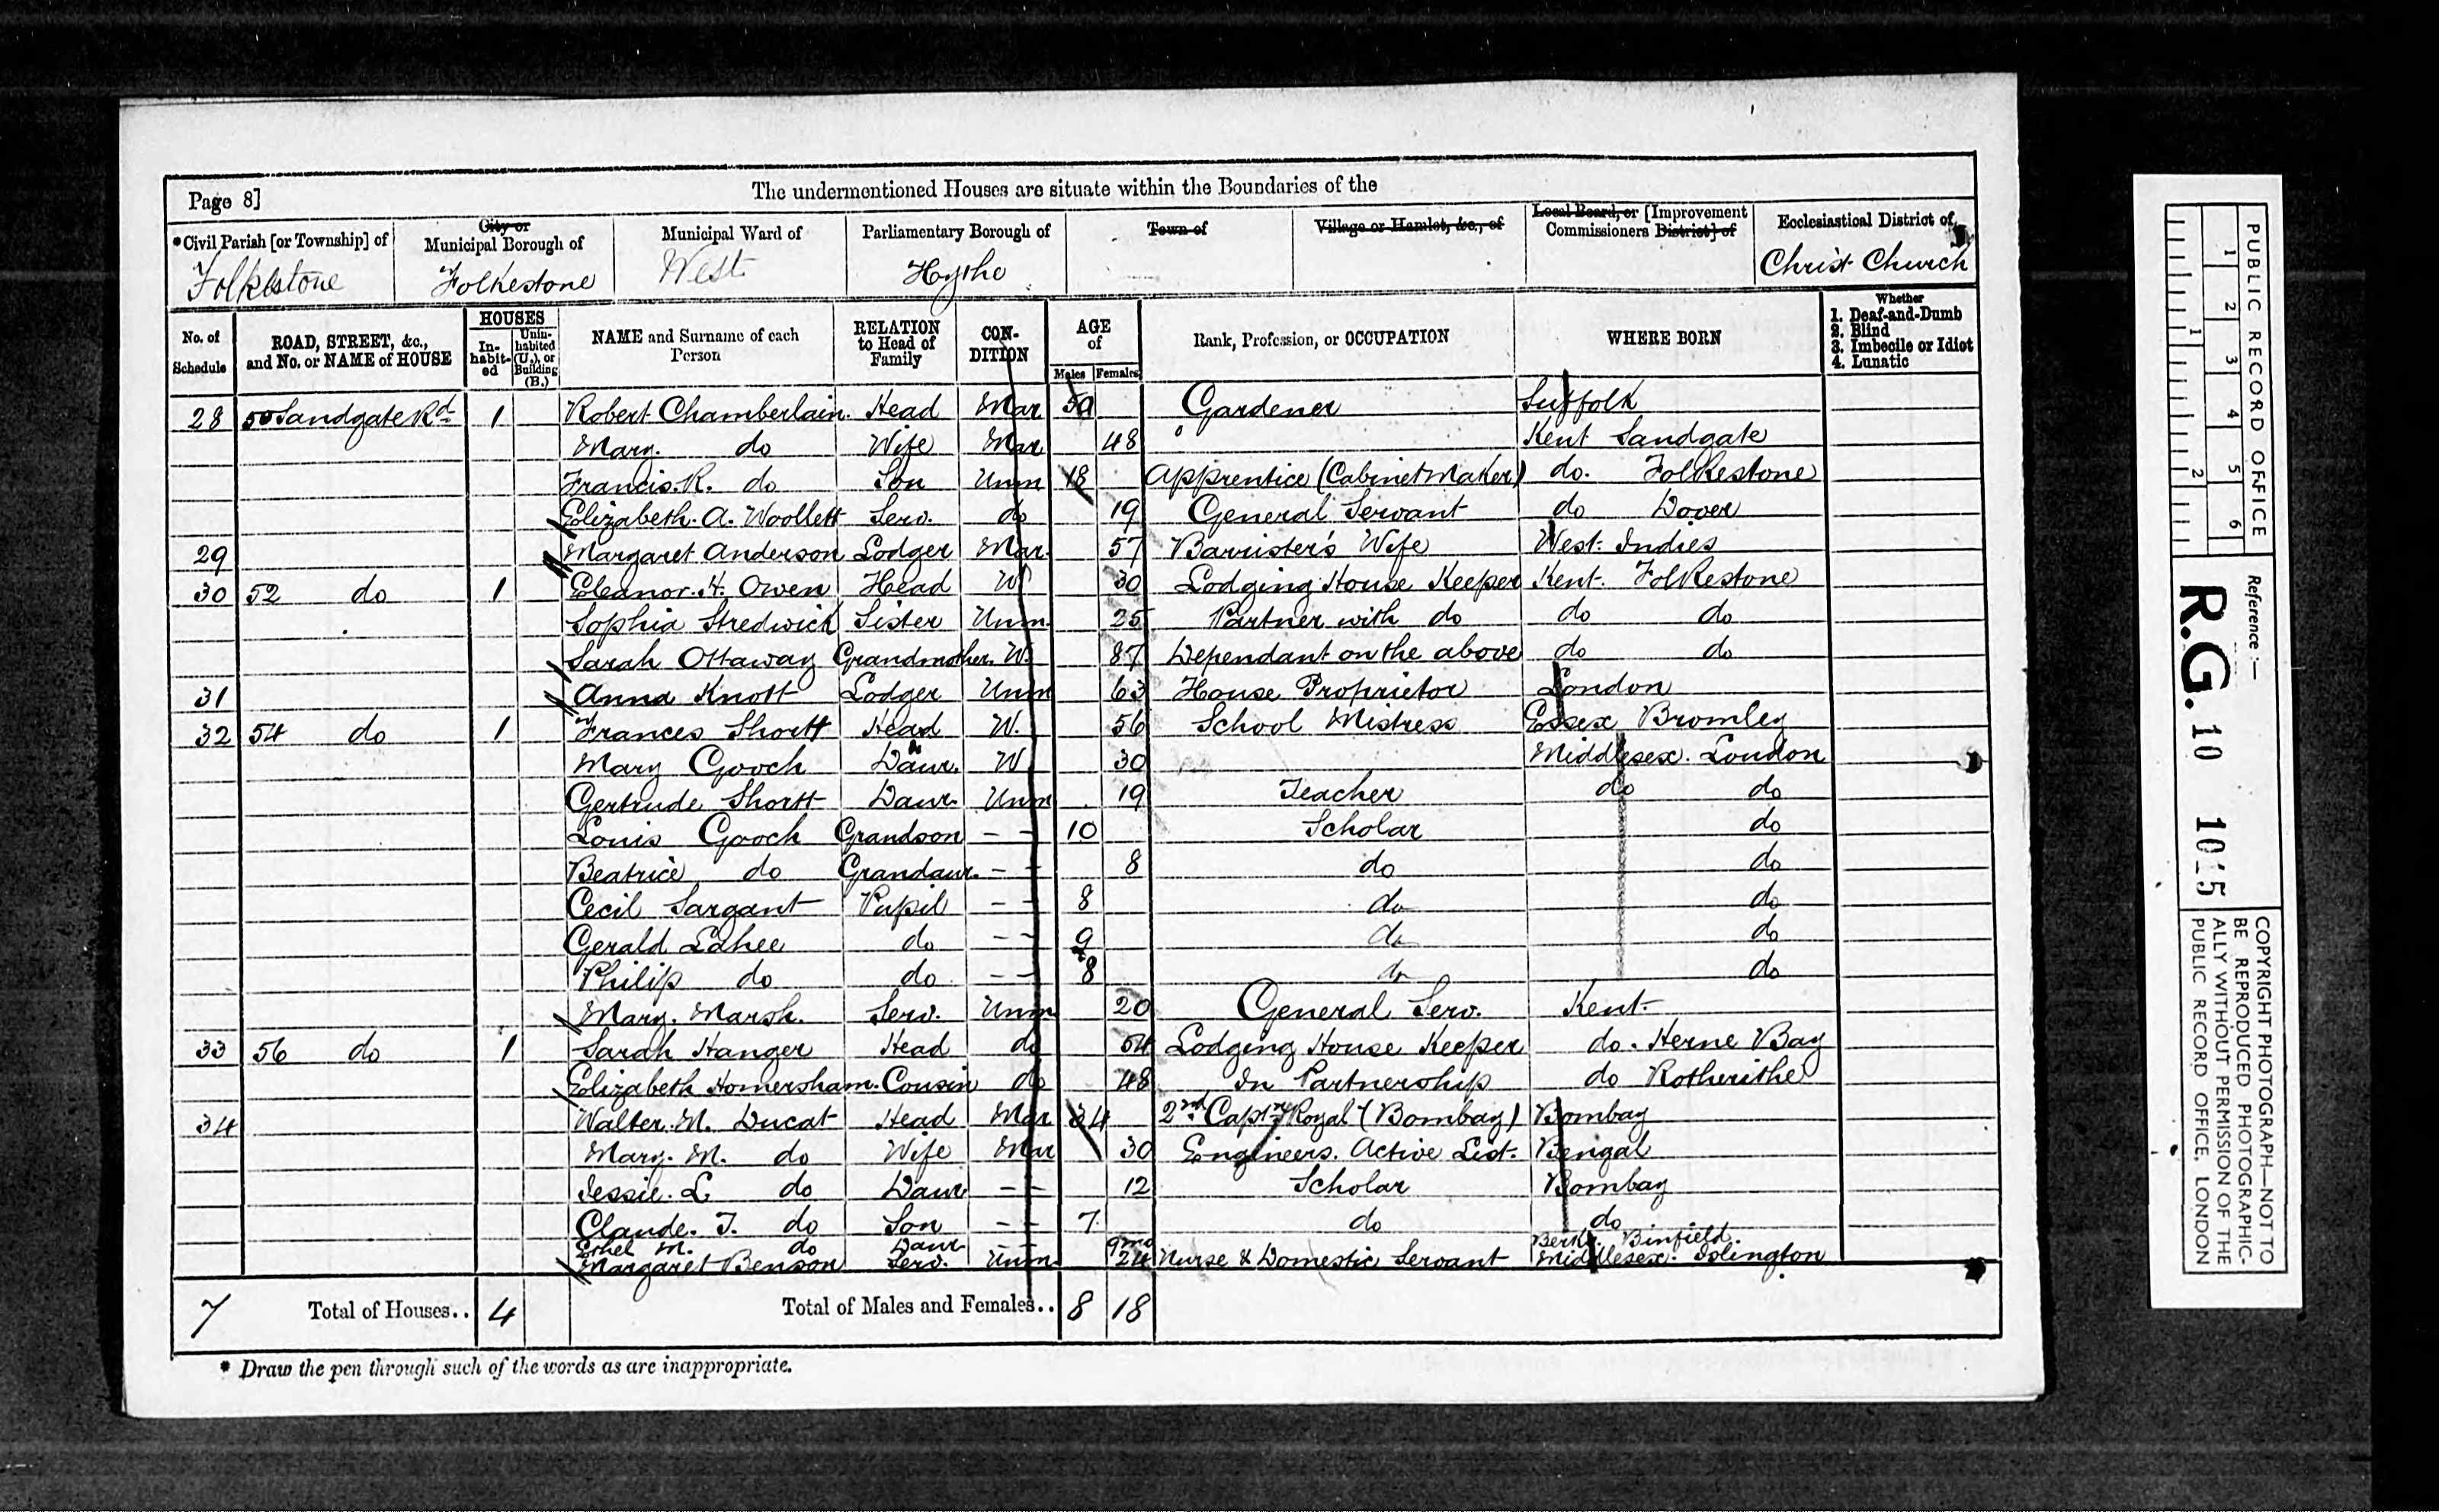 Page 8] The undermentioned Houses are situate within the Boundaries of the
*Civil Parish [or Township] of City or Municipal Borough of Municipal Ward of Parliamentary Borough of Town of Village or Hamlet, &c., of Local Board, or [Improvement Commissioners District] of Ecclesiastical District of
Folkestone Folkestone West Hythe Christ Church
No. of Schedule ROAD, STREET, &c., and No. or NAME of HOUSE HOUSES In-habit-ed Unin-habited (U.), or Building (B.) NAME and Surname of each Person RELATION to Head of Family CON-DITION AGE of Males Females Rank, Profession, or OCCUPATION WHERE BORN Whether 1. Deaf-and-Dumb 2. Blind 3. Imbecile or Idiot 4. Lunatic
28 50 Sandgate Rd 1 Robert Chamberlain. Head Mar 50 Gardener Suffolk
Mary. do Wife Mar 48 Kent Sandgate
Francis. R. do Son Unm 18 Apprentice (Cabinet Maker) do. Folkestone
Elizabeth. A. Woollett Serv. do 19 General Servant do Dover
29 Margaret Anderson Lodger Mar. 57 Barrister's Wife West. Indies
30 52 do 1 Eleanor. H. Owen Head W 30 Lodging House Keeper Kent. Folkestone
Sophia Stredwick Sister Unm. 25 Partner with do do do
Sarah Ottaway Grandmother. W. 87 Dependant on the above do do
31 Anna Knott Lodger Unm 63 House Proprietor London
32 54 do 1 Frances Shortt Head W. 56 School Mistress Essex Bromley
Mary Gooch Daur. W 30 Middlesex. London
Gertrude Shortt Daur. Unm 19 Teacher do do
Louis Gooch Grandson - - 10 Scholar do
Beatrice do Grandaur. - - 8 do do
Cecil Sargant Pupil - - 8 do do
Gerald Lahee do - - 9 do do
Philip do do - - 8 do do
Mary. Marsh. Serv. Unm 20 General Serv. Kent.
33 56 do 1 Sarah Hanger Head do 54 Lodging House Keeper do. Herne Bay
Elizabeth Homersham. Cousin do 48 In Partnership do Rotherithe
34 Walter. M. Ducat Head Mar 34 2nd Captn Royal (Bombay) Bombay
Mary. M. do Wife Mar 30 Engineers. Active List. Bengal
Jessie. L do Daur - - 12 Scholar Bombay
Claude. T. do Son - - 7 do do
Ethel M. do Daur - - 9mo Berks. Binfield.
Margaret Benson Serv. Unm. 24 Nurse & Domestic Servant Middlesex. Islington
7 Total of Houses.. 4 Total of Males and Females.. 8 18
* Draw the pen through such of the words as are inappropriate.
PUBLIC RECORD OFFICE
1 2 3 4 5 6
1 2
Reference :—
R.G. 10 1015
COPYRIGHT PHOTOGRAPH—NOT TO
BE REPRODUCED PHOTOGRAPHIC-
ALLY WITHOUT PERMISSION OF THE
PUBLIC RECORD OFFICE, LONDON